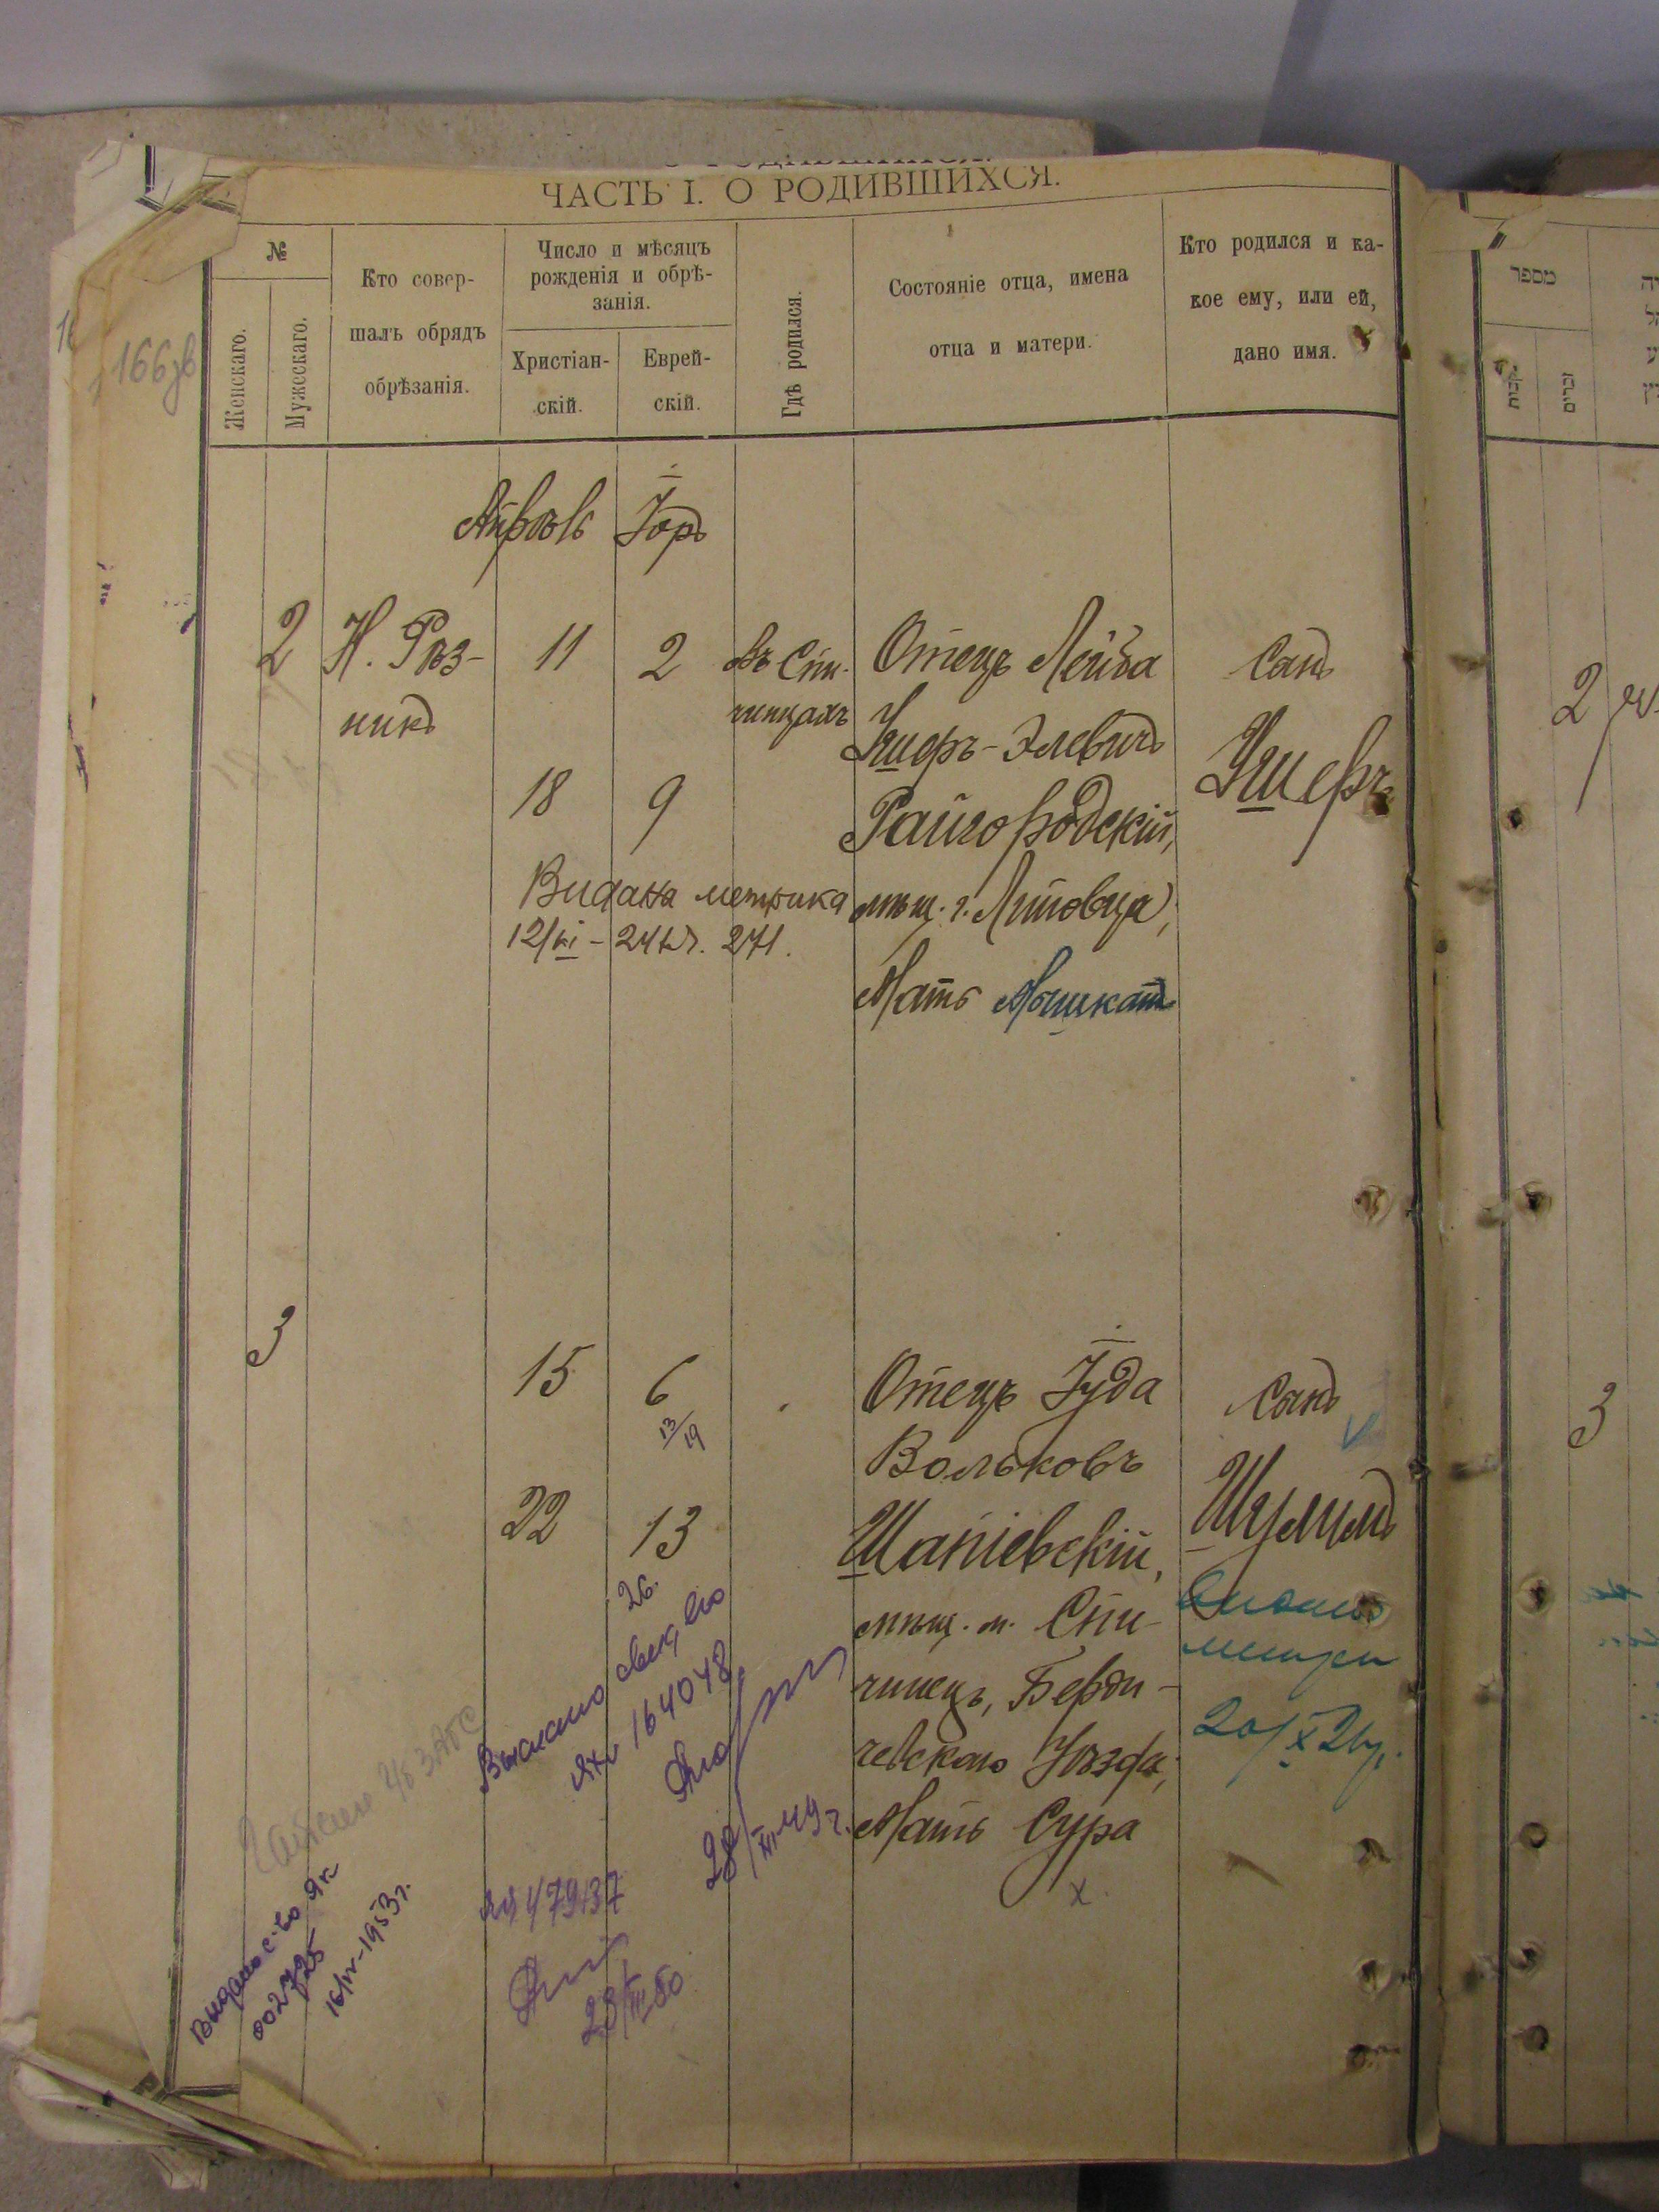 ЧАСТЬ I. О РОДИВШИХСЯ.
№
Женскаго.
Мужескаго.
Кто совер-
шалъ обрядъ
обрѣзанія.
Число и мѣсяцъ
рожденія и обрѣ-
занія.
Христіан-
скій.
Еврей-
скій.
Гдѣ родился.
Состояніе отца, имена
отца и матери.
Кто родился и ка-
кое ему, или ей,
дано имя.
166 зв
Апрѣль Іоръ
2 Н. Рѣз-
никъ
11 2
18 9
Въ Спи-
чинцахъ
Отецъ Лейба
Ушеръ-Элевичъ
Райгородскій,
мѣщ. г. Липовца,
Мать
Сынъ
Ушеръ
Видана метрика
12/XI - 24 р. 271.
3
15 6
13/19
22 13
Отецъ Іуда
Вольковъ
Шапіевскій,
мѣщ. м. Спи-
чинецъ, Берди-
чевскаго Уѣзда,
Мать Сура
х
Сынъ
Шулимъ
метрику
20/X 26 р.
26.
Выслано свид-во
164048
28/XI 49 г.
479137
28/III 50
Выдано с-во
002725
16/IV-1953 г.
ЗАГС
מספר
נקבות
זכרים
2
3